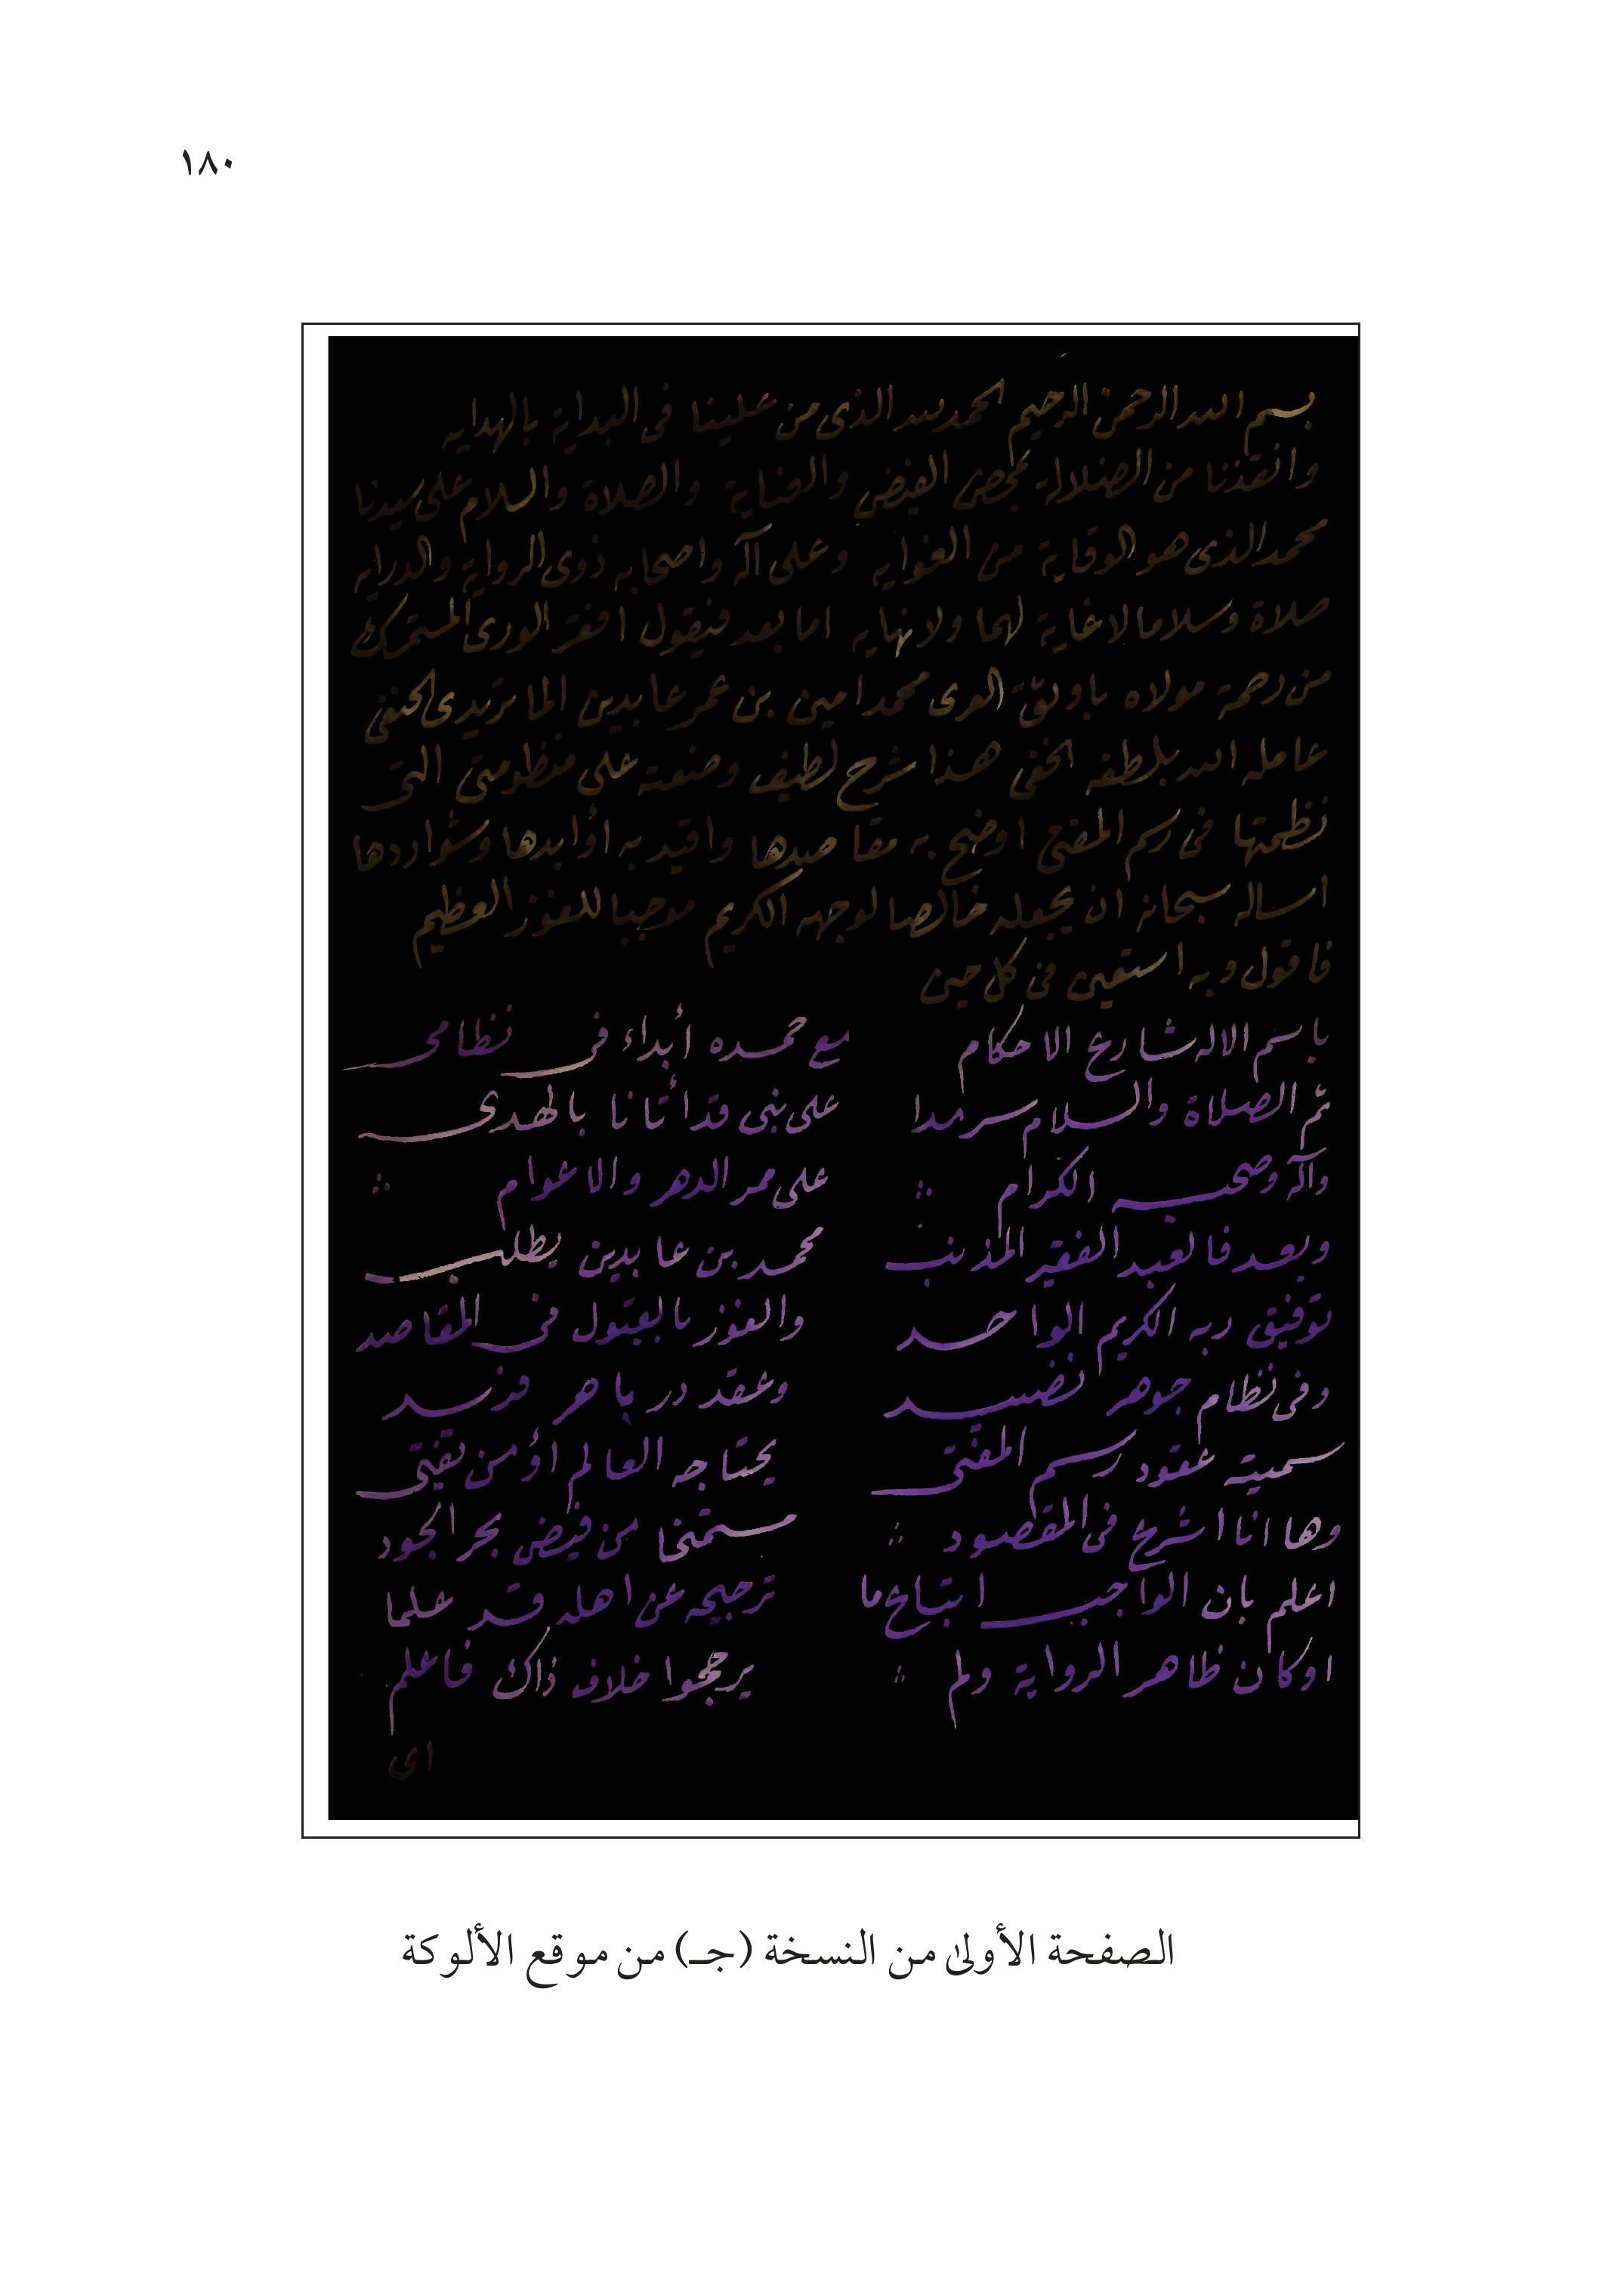 ١٨٠
بسم الله الرحمن الرحيم الحمد لله الذى من علينا فى البداية بالهدايه
وانقذنا من الضلالة بمحض الفيض والعناية والصلاة والسلام على سيدنا
محمد الذى هو الوقاية من الغوايه وعلى آله واصحابه ذوى الرواية والدرايه
صلاة وسلاما لا غاية لهما ولا نهايه اما بعد فيقول افقر الورى المستمسك
من رحمة مولاه باوثق العرى محمد امين بن عمر عابدين الماتريدى الحنفى
عامله الله بلطفه الخفى هذا شرح لطيف وضعته على منظومتى التى
نظمتها فى رسم المفتى اوضح به مقاصدها واقيد به أوابدها وشواردها
اساله سبحانه ان يجعله خالصا لوجهه الكريم موجبا للفوز العظيم
فاقول وبه استعين فى كل حين
باسم الاله شارع الاحكام مع حمده أبداء فى نظامى
ثم الصلاة والسلام سرمدا على نبى قد أتانا بالهدى
وآله وصحبه الكرام على ممر الدهر والاعوام
وبعد فالعبد الفقير المذنب محمد بن عابدين يطلب
توفيق ربه الكريم الواحد والفوز بالقبول فى المقاصد
وفى نظام جوهر نضيد وعقد در باهر فريد
سميته عقود رسم المفتى يحتاجه العالم أو من يفتى
وها انا اشرع فى المقصود مستمنحا من فيض بحر الجود
اعلم بان الواجب اتباع ما ترجيحه عن اهله قد علما
او كان ظاهر الرواية ولم يرجحوا خلاف ذاك فاعلم
اى
الصفحة الأولىٰ من النسخة (جـ) من موقع الألوكة